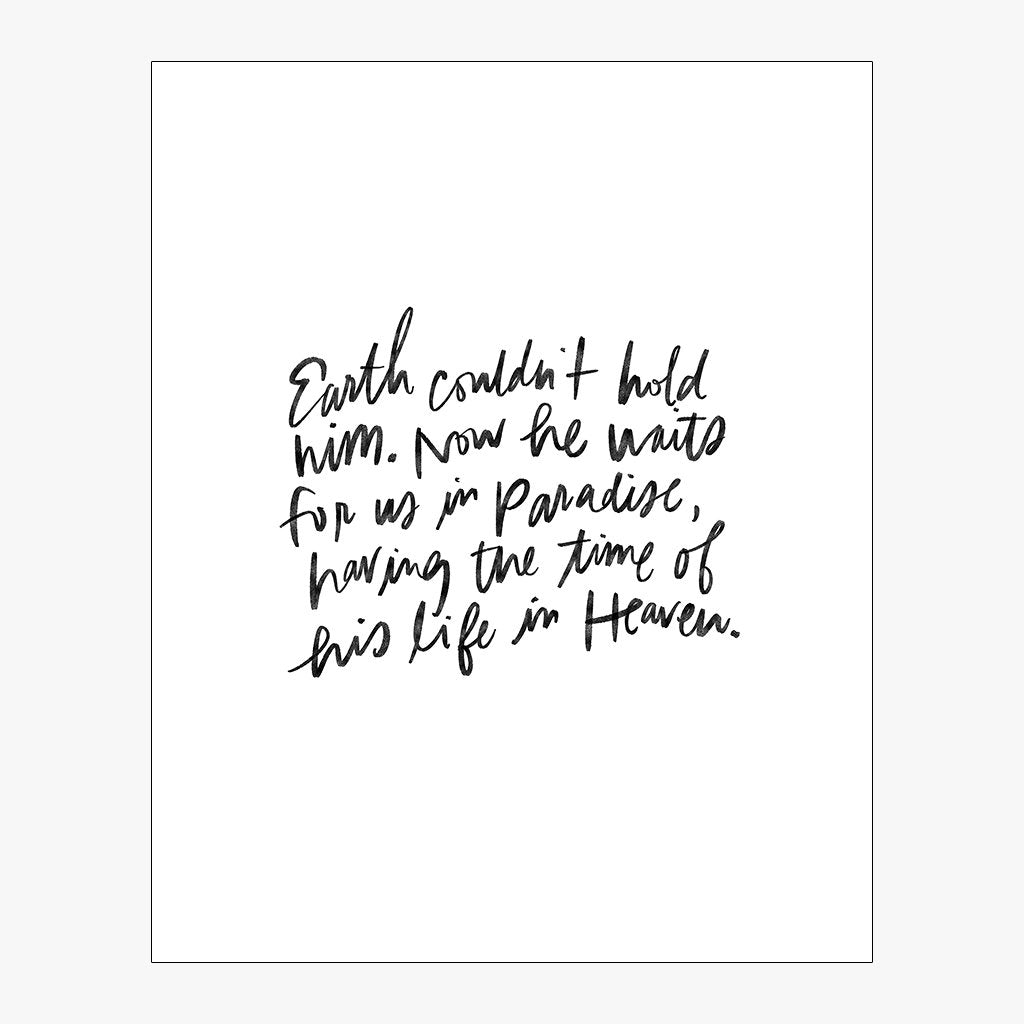 Earth couldn't hold
him. Now he waits
for us in Paradise,
having the time of
his life in Heaven.